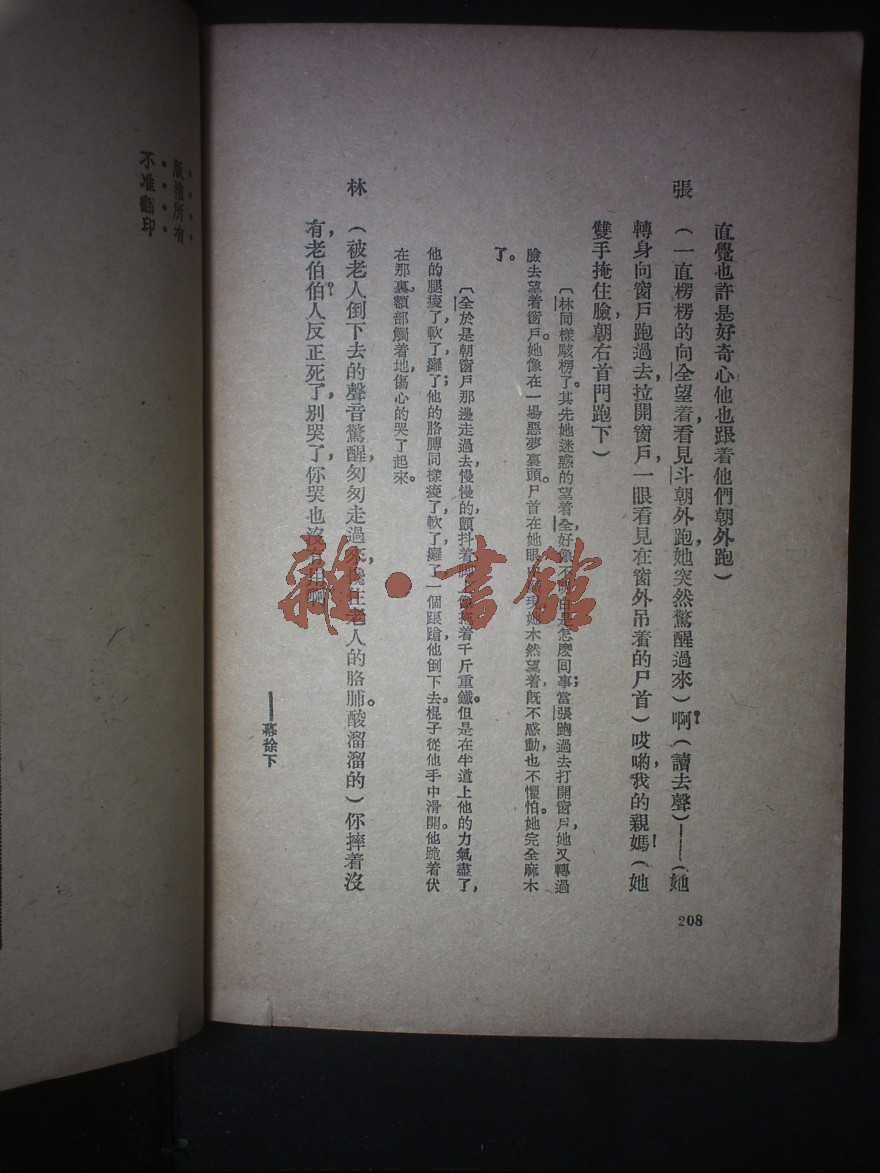 直覺也許是好奇心他也跟着他們朝外跑）
張　（一直楞楞的向全望着，看見斗朝外跑，她突然驚醒過來）啊？（讀去聲）——（她
轉身向窗戶跑過去，拉開窗戶，一眼看見在窗外吊着的尸首）哎喲，我的親媽！（她
雙手掩住臉，朝右首門跑下）
〔林同樣駭楞了。其先她迷惑的望着全，好像不明白是怎麼回事；當張跑過去打開窗戶，她又轉過
臉去望着窗戶。她像在一場惡夢裏頭。尸首在她眼　她木然望着，旣不感動，也不懼怕。她完全麻木
了。
〔全於是朝窗戶那邊走過去，慢慢的，顫抖着，　着千斤重鐵。但是在半道上他的力氣盡了，
他的腿痠了，軟了，癱了；他的胳膊同樣痠了，軟了，癱了，一個踉蹌，他倒下去。棍子從他手中滑開。他跪着，伏
在那裏，額部觸着地，傷心的哭了起來。
林　（被老人倒下去的聲音驚醒，匆匆走過來，攙住老人的胳膊。酸溜溜的）你摔着沒
有，老伯伯？人反正死了，別哭了，你哭也沒有用啊
——幕徐下
208
版權所有
不准翻印
雜·書館